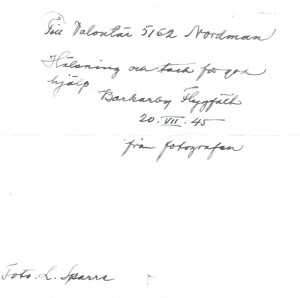 Till Valontär 5162 Nordman
Hälsning och tack för god
hjälp
Barkarby Flygfält
20. VII. 45
från fotografen
Foto. L. Sparre